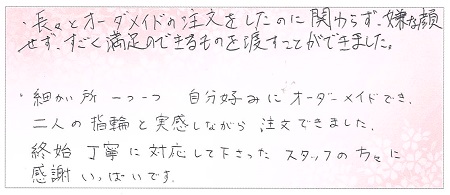 ・長々とオーダメイドの注文をしたのに関わらず、嫌な顔
せず、すごく満足のできるものを渡すことができました。
・細かい所一つ一つ 自分好みにオーダーメイドでき、
二人の指輪と実感しながら注文できました。
終始丁寧に対応して下さったスタッフの方々に
感謝いっぱいです。